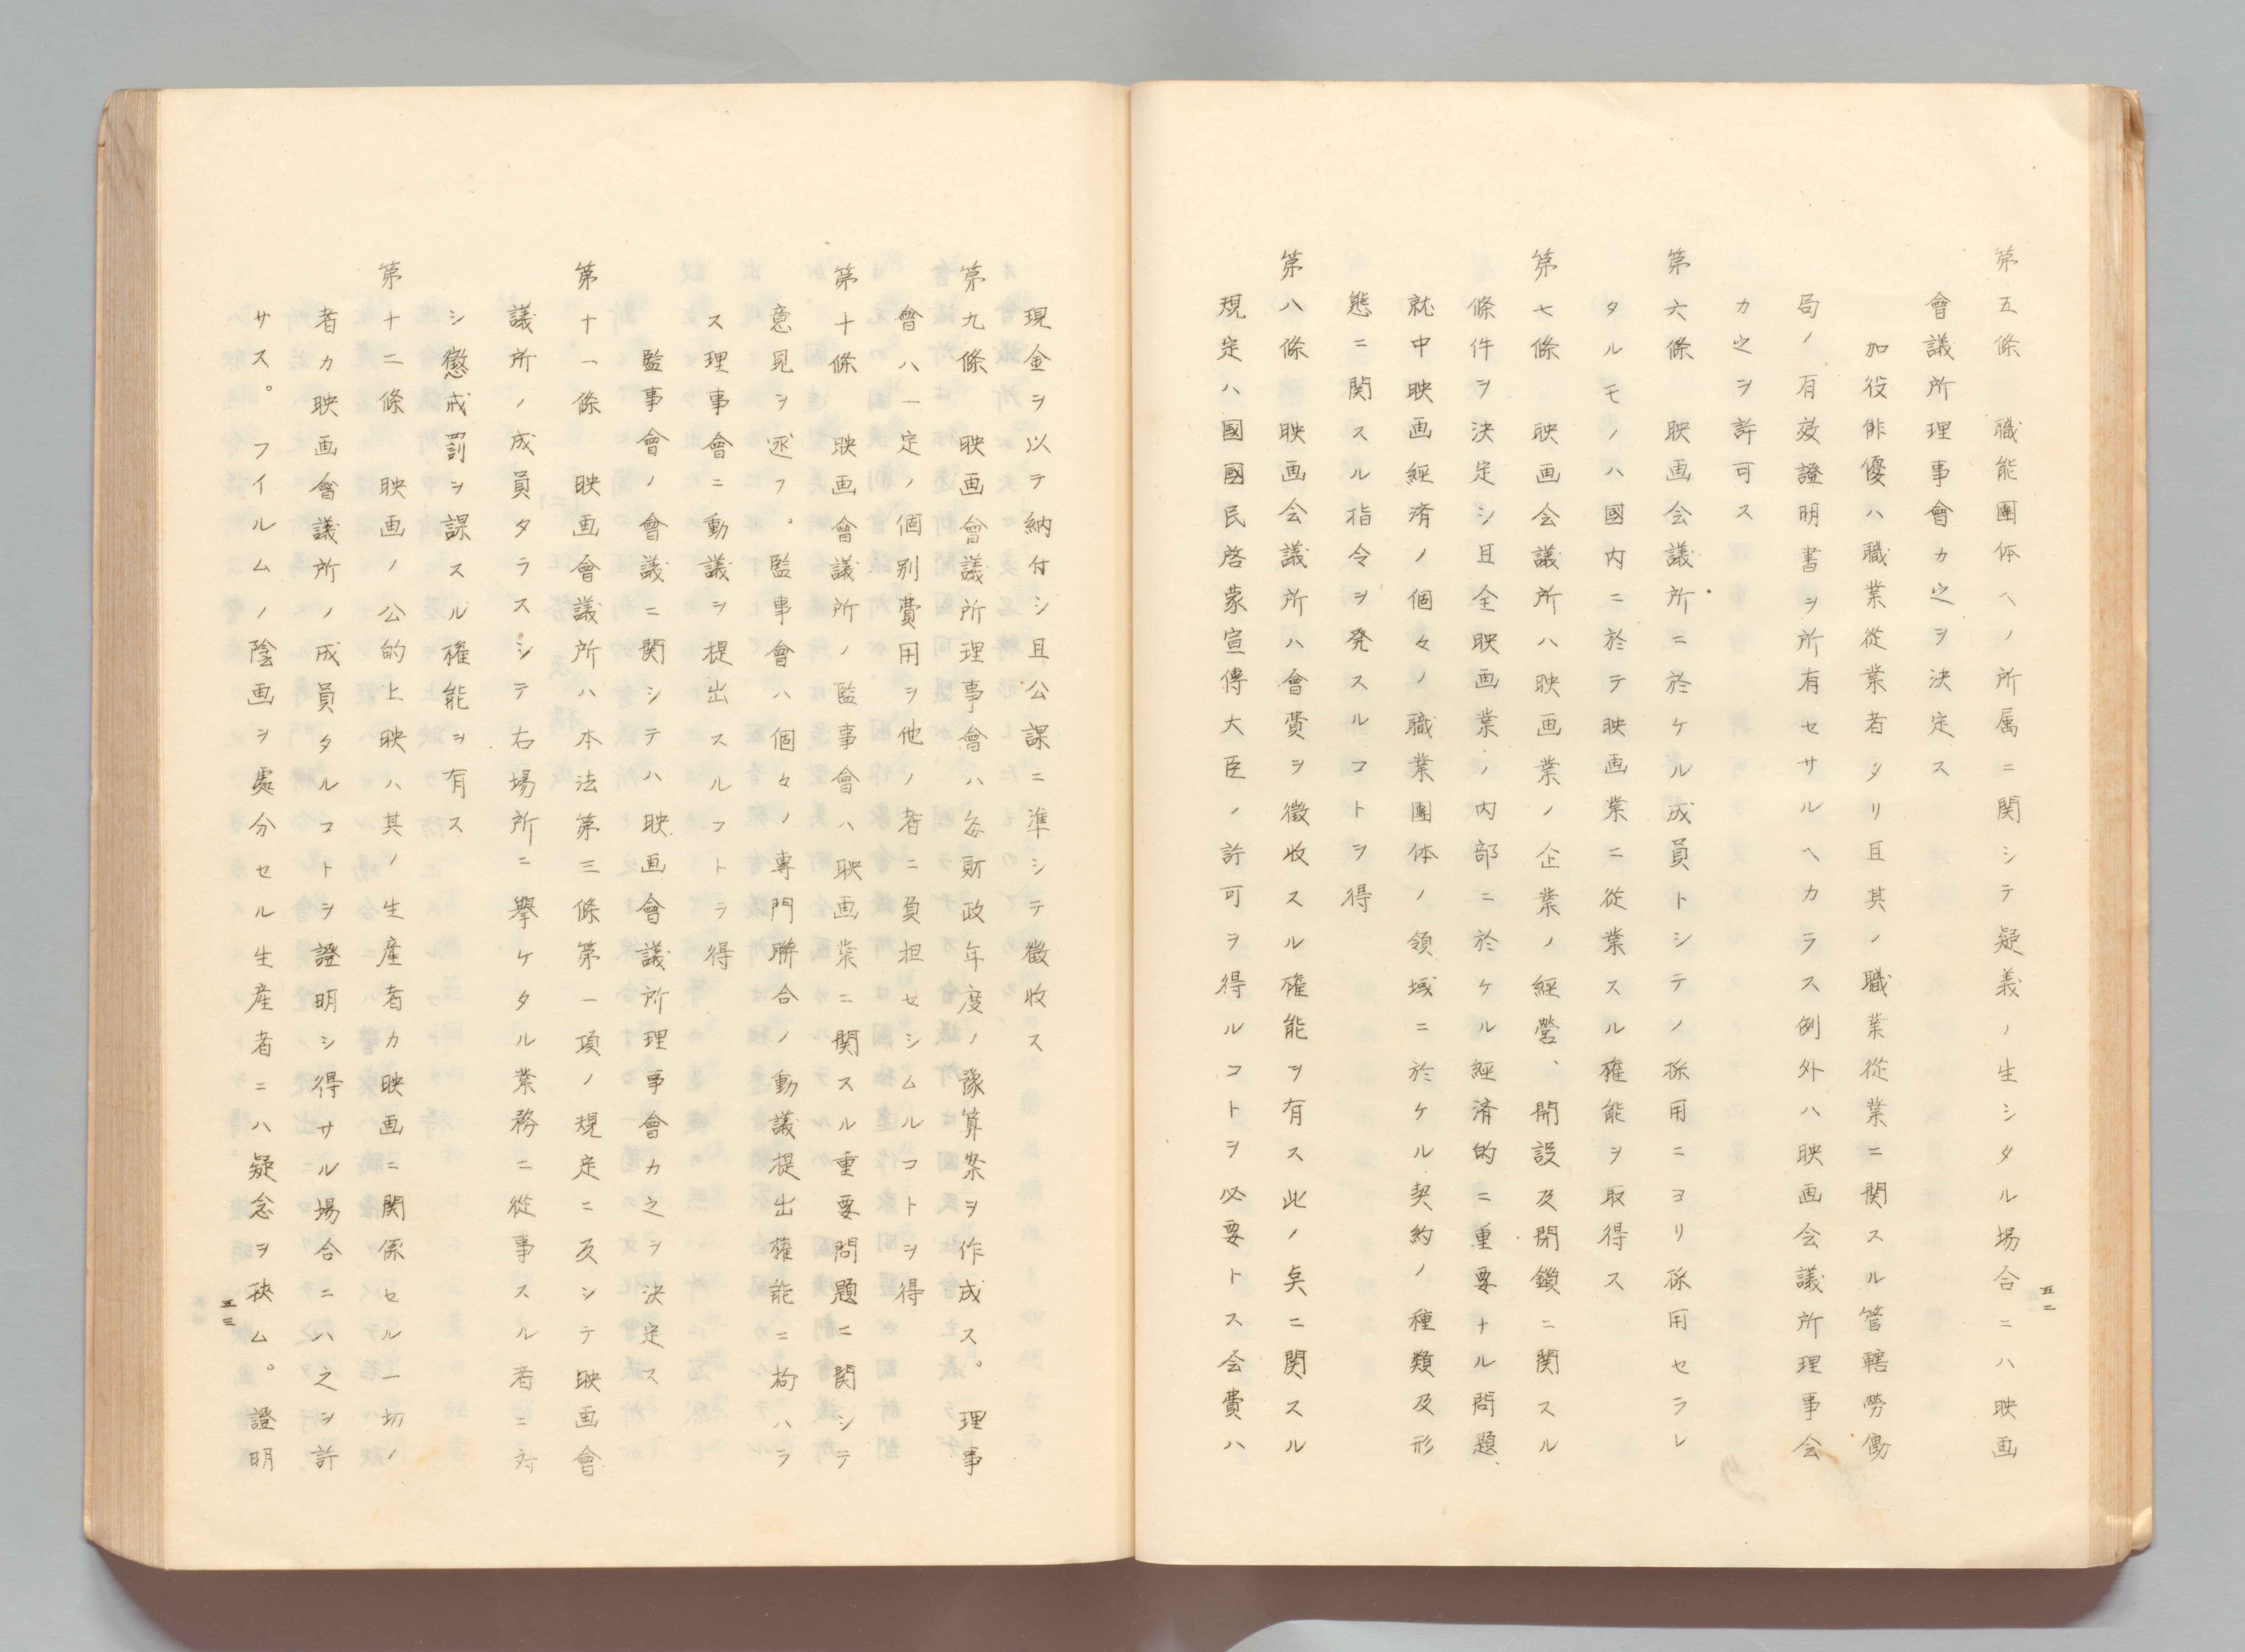 第五條　職能團体ヘノ所属ニ関シテ疑義ノ生シタル場合ニハ映画
會議所理事會カ之ヲ決定ス
加役俳優ハ職業從業者タリ且其ノ職業從業ニ関スル管轄勞働
局ノ有效證明書ヲ所有セサルヘカラス例外ハ映画会議所理事会
カ之ヲ許可ス
第六條　映画会議所ニ於ケル成員トシテノ採用ニヨリ採用セラレ
タルモノハ國内ニ於テ映画業ニ從業スル権能ヲ取得ス
第七條　映画会議所ハ映画業ノ企業ノ経營、開設及閉鎖ニ関スル
條件ヲ決定シ且全映画業ノ内部ニ於ケル経済的ニ重要ナル問題、
就中映画経済ノ個々ノ職業團体ノ領域ニ於ケル契約ノ種類及形
態ニ関スル指令ヲ発スルコトヲ得
第八條　映画会議所ハ會費ヲ徴收スル権能ヲ有ス此ノ矣ニ関スル
規定ハ國國民啓蒙宣傳大臣ノ許可ヲ得ルコトヲ必要トス会費ハ
五二
現金ヲ以テ納付シ且公課ニ準シテ徴收ス
第九條　映画會議所理事會ハ每財政年度ノ豫算案ヲ作成ス。理事
會ハ一定ノ個別費用ヲ他ノ者ニ負担セシムルコトヲ得
第十條　映画會議所ノ監事會ハ映画業ニ関スル重要問題ニ関シテ
意見ヲ述フ。監事會ハ個々ノ專門聯合ノ動議提出権能ニ拘ハラ
ス理事會ニ動議ヲ提出スルコトヲ得
監事會ノ會議ニ関シテハ映画會議所理事會カ之ヲ決定ス
第十一條　映画會議所ハ本法第三條第一項ノ規定ニ反シテ映画會
議所ノ成員タラスシテ右場所ニ擧ケタル業務ニ從事スル者ニ対
シ懲戒罰ヲ課スル権能ヲ有ス
第十二條　映画ノ公的上映ハ其ノ生産者カ映画ニ関係セル一切ノ
者カ映画會議所ノ成員タルコトヲ證明シ得サル場合ニハ之ヲ許
サス。フイルムノ陰画ヲ處分セル生産者ニハ疑念ヲ挾ム。證明
五三